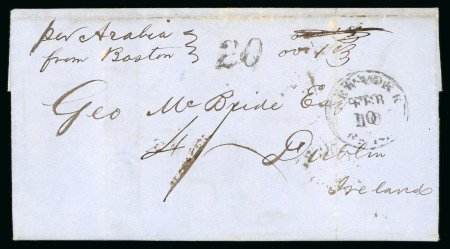 per Arabia
from Boston
20
Geo McBride Esq
4/-
Dublin
Ireland
NEW YORK
FEB
10